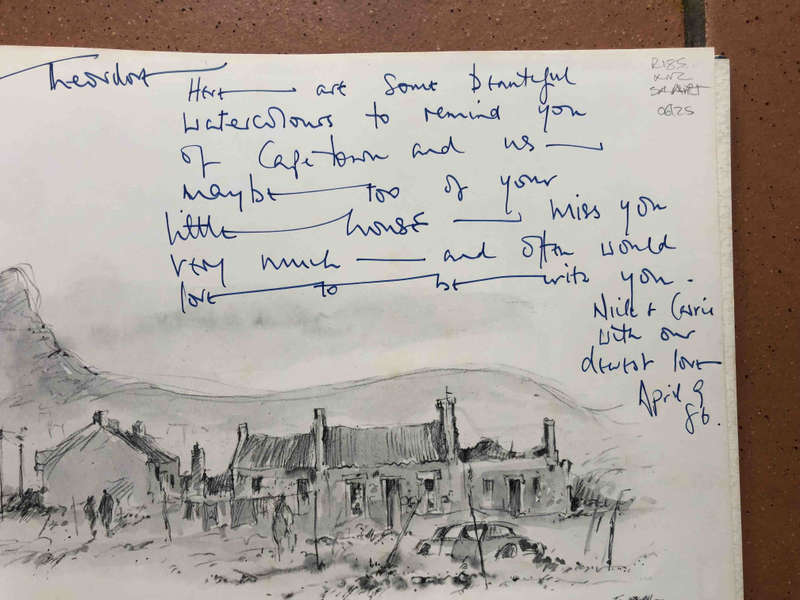 Theordore
Here are some beautiful
watercolours to remind you
of Cape Town and us
maybe too of your
little house miss you
very much and often would
love to be with you.
Nick & Carrie
with our
dearest love
April 9
86.
R185
06/25